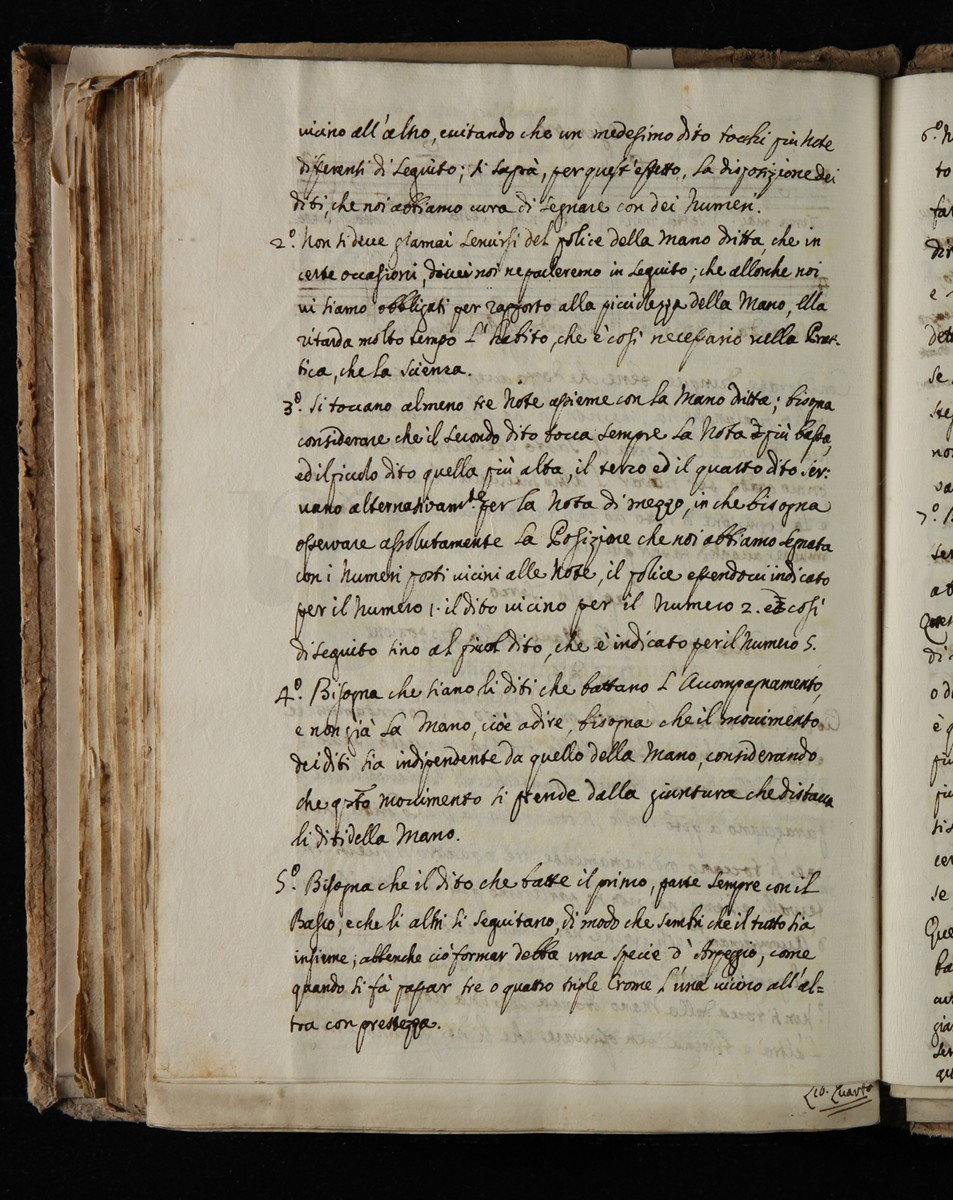 vicino all'altro, evitando che un medesimo dito tocchi più Note
differenti di Seguito; si saprà, per quest'effetto, La disposizione dei
diti, che noi abbiamo cura di Segnare con dei Numeri.
2.º Non si deve giamai Servirsi del police della Mano dritta, che in
certe occasioni, di cui noi ne parleremo in Seguito; che allorche noi
vi siamo obbligati per rapporto alla picciolezza della Mano, Ella
ritarda molto tempo L'habito, che è così necessario nella Prat-
tica, che La Scienza.
3.º Si toccano almeno tre Note assieme con La Mano dritta; bisogna
considerare che il Secondo dito tocca Sempre La Nota più bassa,
ed il picolo dito quella più alta, il terzo ed il quarto dito ser:
vano alternativamte. per La Nota di mezzo, in che bisogna
osservare assolutamente La Posizione che noi abbiamo Segnata
con i Numeri posti vicini alle Note, il police essendovi indicato
per il Numero 1. il dito vicino per il Numero 2. e così
di Seguito sino al picol dito, che è indicato per il Numero 5.
4.º Bisogna che siano li diti che battano L'Accompagnamento,
e non già La Mano, cioè a dire, bisogna che il movimento
dei diti sia indipendente da quello della Mano, considerando
che qsto Movimento si prende dalla giuntura che distacca
li diti della Mano.
5.º Bisogna che il dito che batte il primo, parte Sempre con il
Basso, e che li altri si Seguitano, di modo che sembri che il tutto sia
insieme; abbenche ciò formar debba una specie d'Arpeggio, come
quando si fà passar tre o quattro triple Crome L'una vicino all'al=
tra con prestezza.
Lio. Quarto